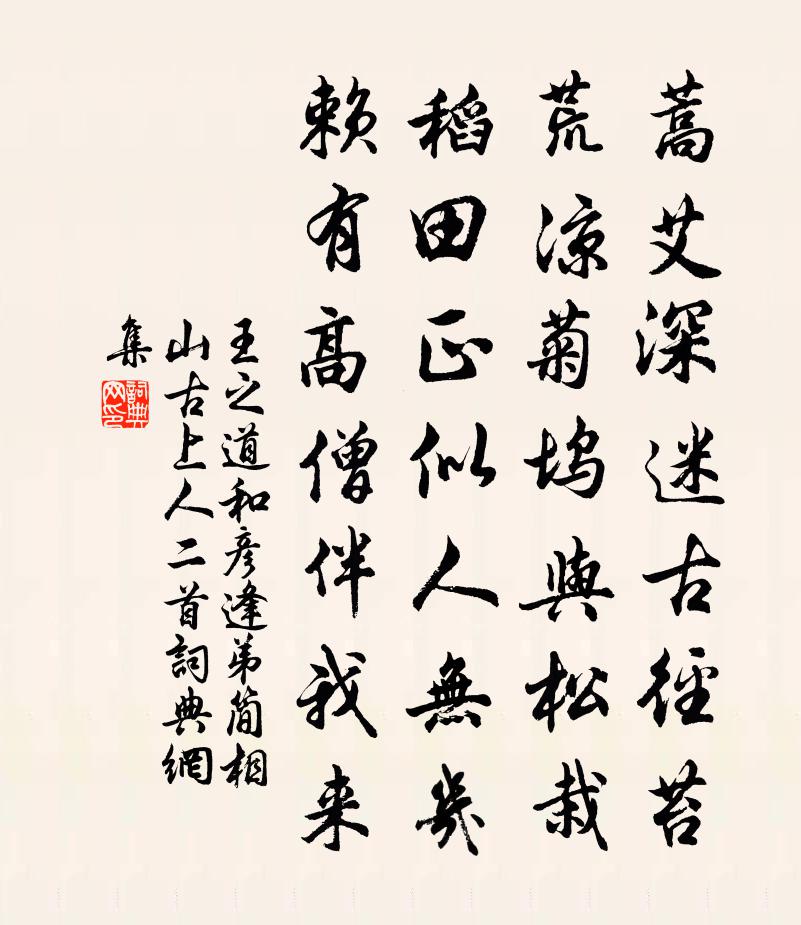 蒿艾深迷古徑苔
荒涼菊塢與松栽
稻田正似人無幾
賴有高僧伴我来
王之道和彥逢弟簡相
山古上人二首詞典網
集
詞典
网印